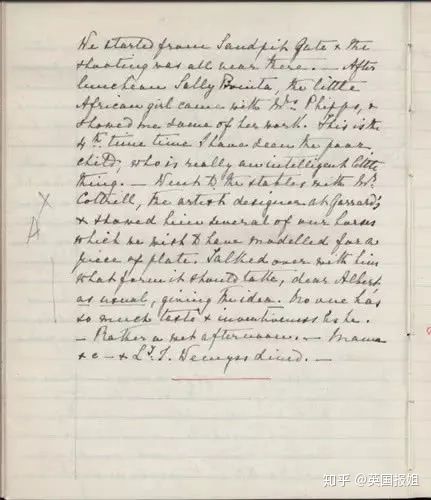 We started from Sandpit Gate & the
shooting was all near there. — After
luncheon Sally Bonita, the little
African girl came with Mrs. Phipps, &
showed me some of her work. This is the
4th. time time I have seen the poor
child, who is really an intelligent little
thing. — Went to the stables with Mr.
Cotterill, the artist designer at Garrard's
& showed him several of our horses
which we wish to have modelled for a
piece of plate. Talked over with him
what form it should take, dear Albert,
as usual, giving the idea. No one has
so much taste & inventiveness as he.
— Rather a wet afternoon. — Mama
&c — & Lt. F. Wemyss dined. —
知乎 @英国报姐